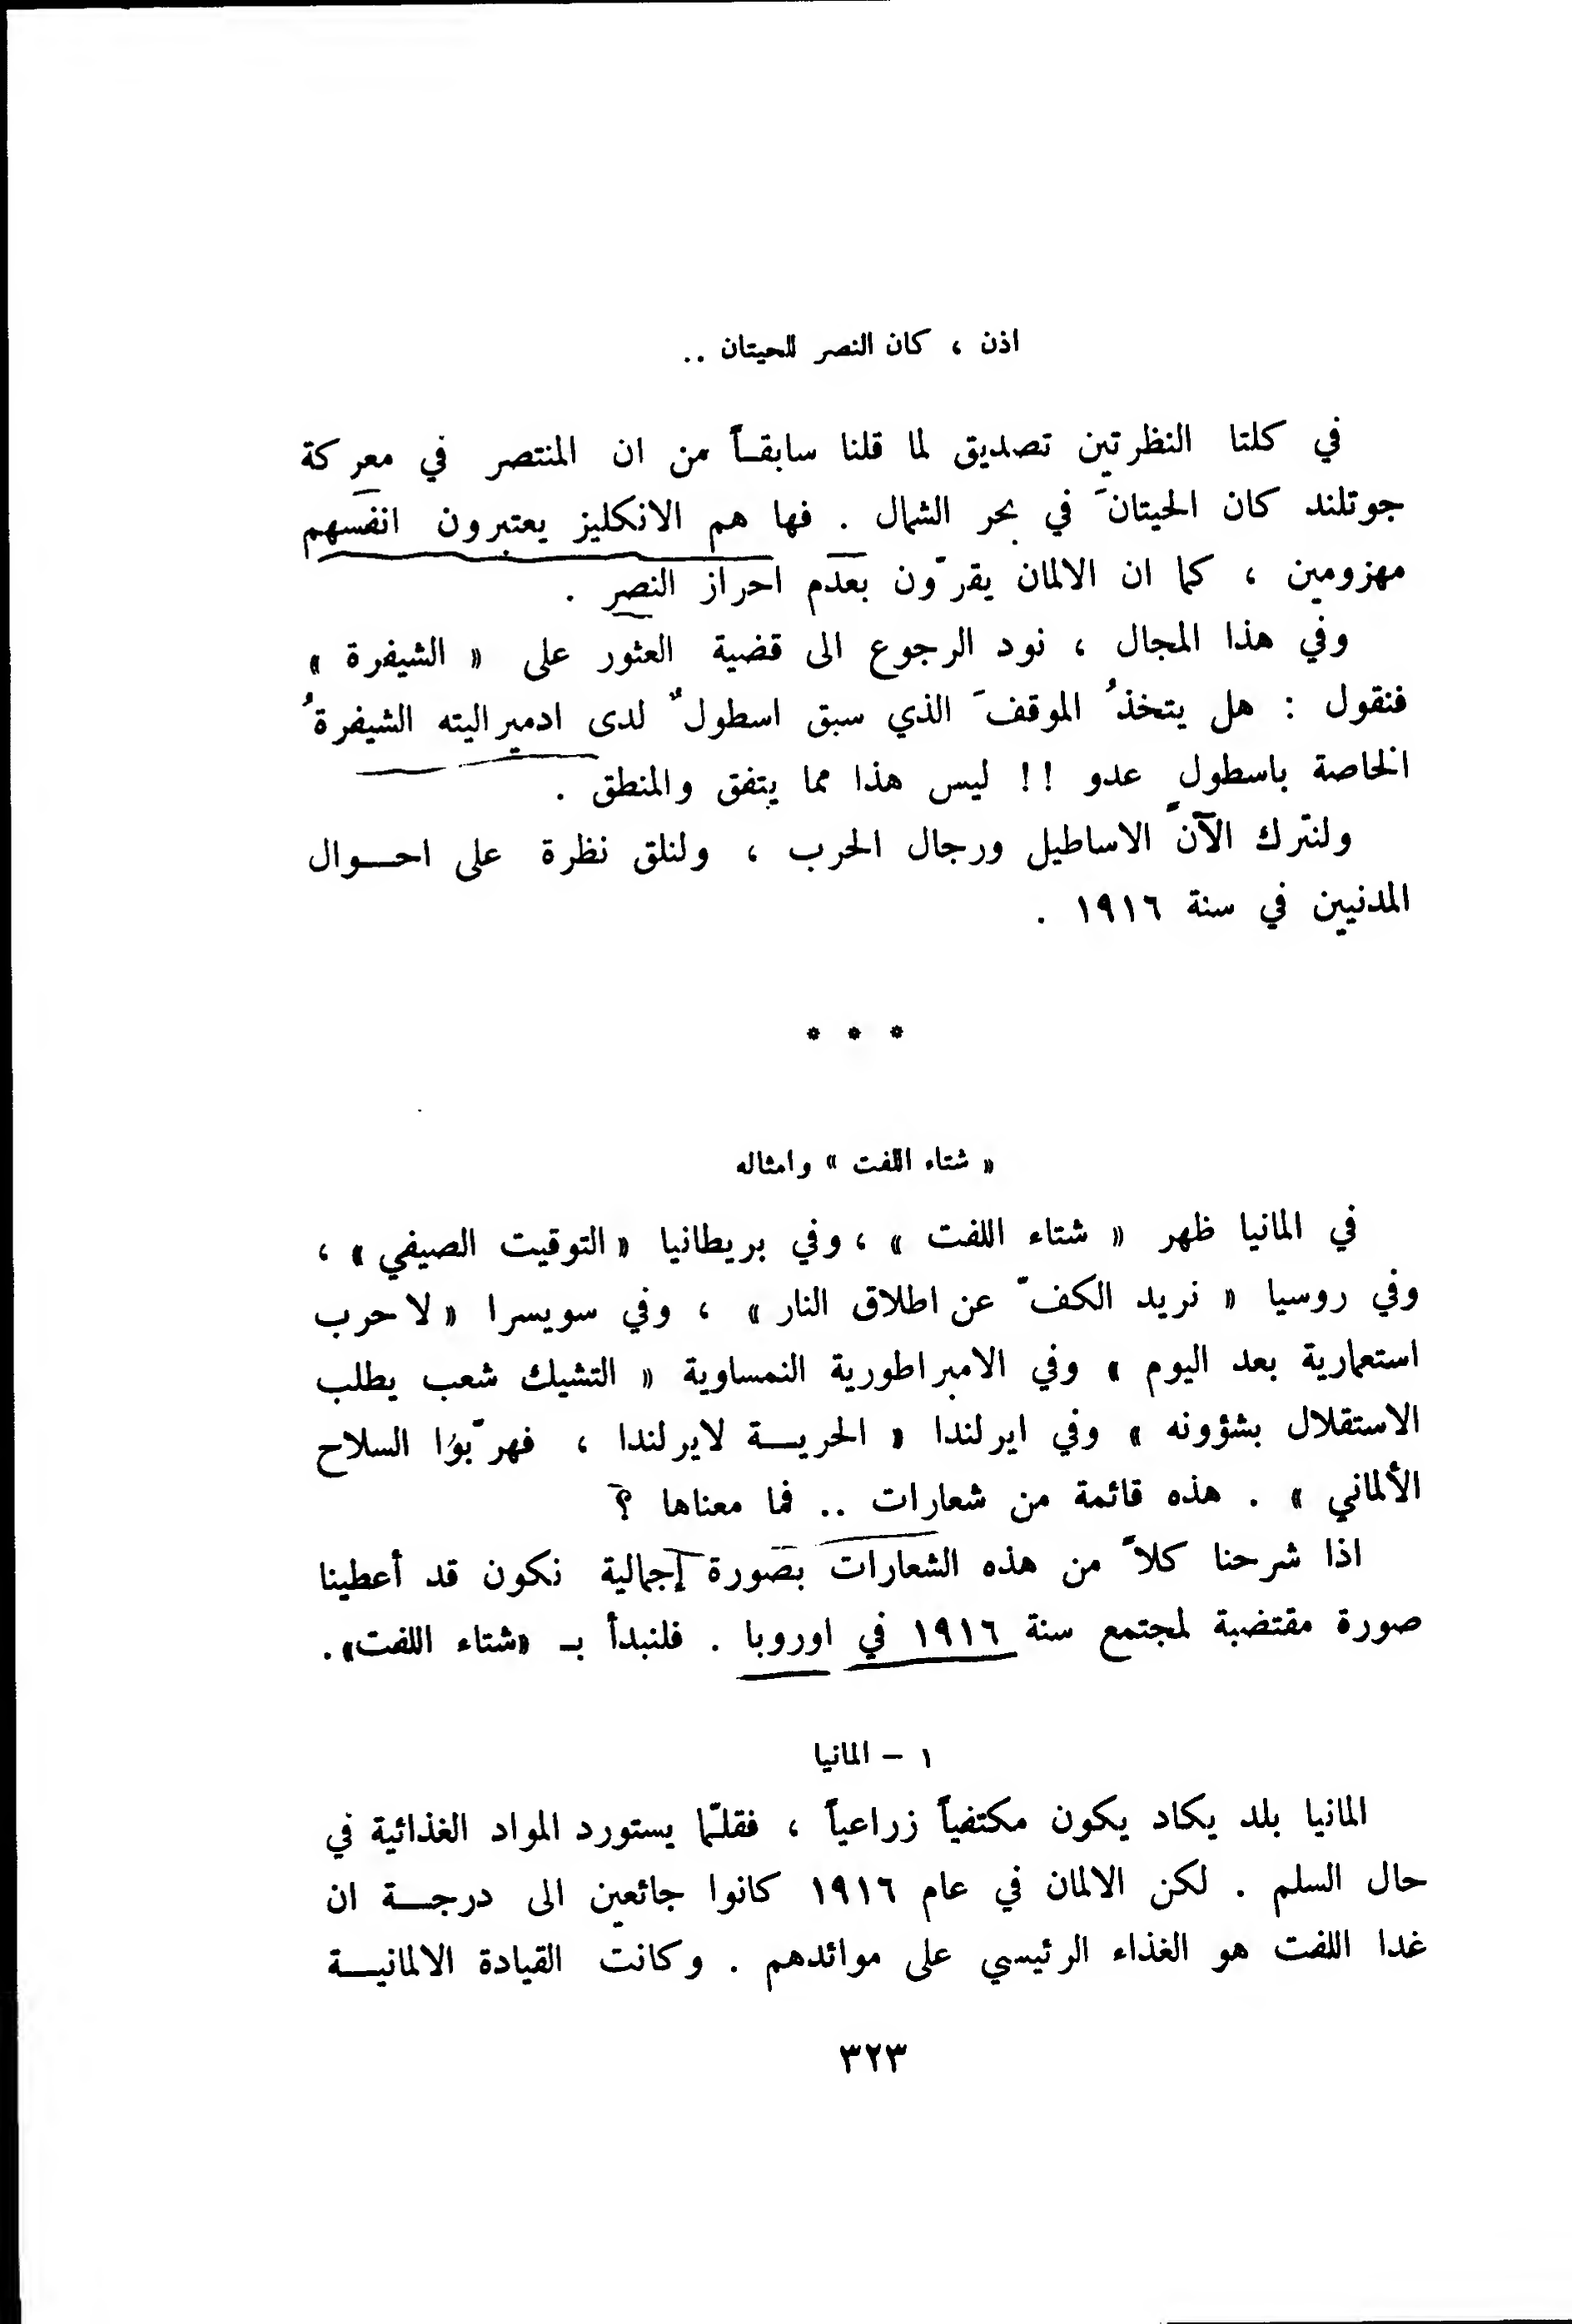 اذن ، كان النصر للحيتان ..
في كلتا النظرتين تصديق لما قلنا سابقـاً من ان المنتصر في معركة
جوتلند كان الحيتانَ في بحر الشمال . فها هم الانكليز يعتبرون انفسهم
مهزومين ، كما ان الالمان يقرّون بعدم احراز النصر .
وفي هذا المجال ، نود الرجوع الى قضية العثور على « الشيفرة »
فنقول : هل يتخذُ الموقفَ الذي سبق اسطولٌ لدى ادميراليته الشيفرةُ
الخاصة باسطولِ عدو !! ليس هذا مما يتفق والمنطق .
ولنترك الآنَ الاساطيل ورجال الحرب ، ولنلق نظرة على احـــوال
المدنيين في سنة ١٩١٦ .
* * *
« شتاء اللفت » وامثاله
في المانيا ظهر « شتاء اللفت » ، وفي بريطانيا « التوقيت الصيفي » ،
وفي روسيا « نريد الكفّ عن اطلاق النار » ، وفي سويسرا « لا حرب
استعمارية بعد اليوم » وفي الامبراطورية النمساوية « التشيك شعب يطلب
الاستقلال بشؤونه » وفي ايرلندا « الحريـــة لايرلندا ، فهرّبوُا السلاح
الألماني » . هذه قائمة من شعارات .. فما معناها ؟
اذا شرحنا كلاً من هذه الشعارات بصورة إجمالية نكون قد أعطينا
صورة مقتضبة لمجتمع سنة ١٩١٦ في اوروبا . فلنبدأ بـ «شتاء اللفت».
١ – المانيا
المانيا بلد يكاد يكون مكتفياً زراعياً ، فقلـّما يستورد المواد الغذائية في
حال السلم . لكن الالمان في عام ١٩١٦ كانوا جائعين الى درجـــة ان
غدا اللفت هو الغذاء الرئيسي على موائدهم . وكانت القيادة الالمانيـــة
٣٢٣